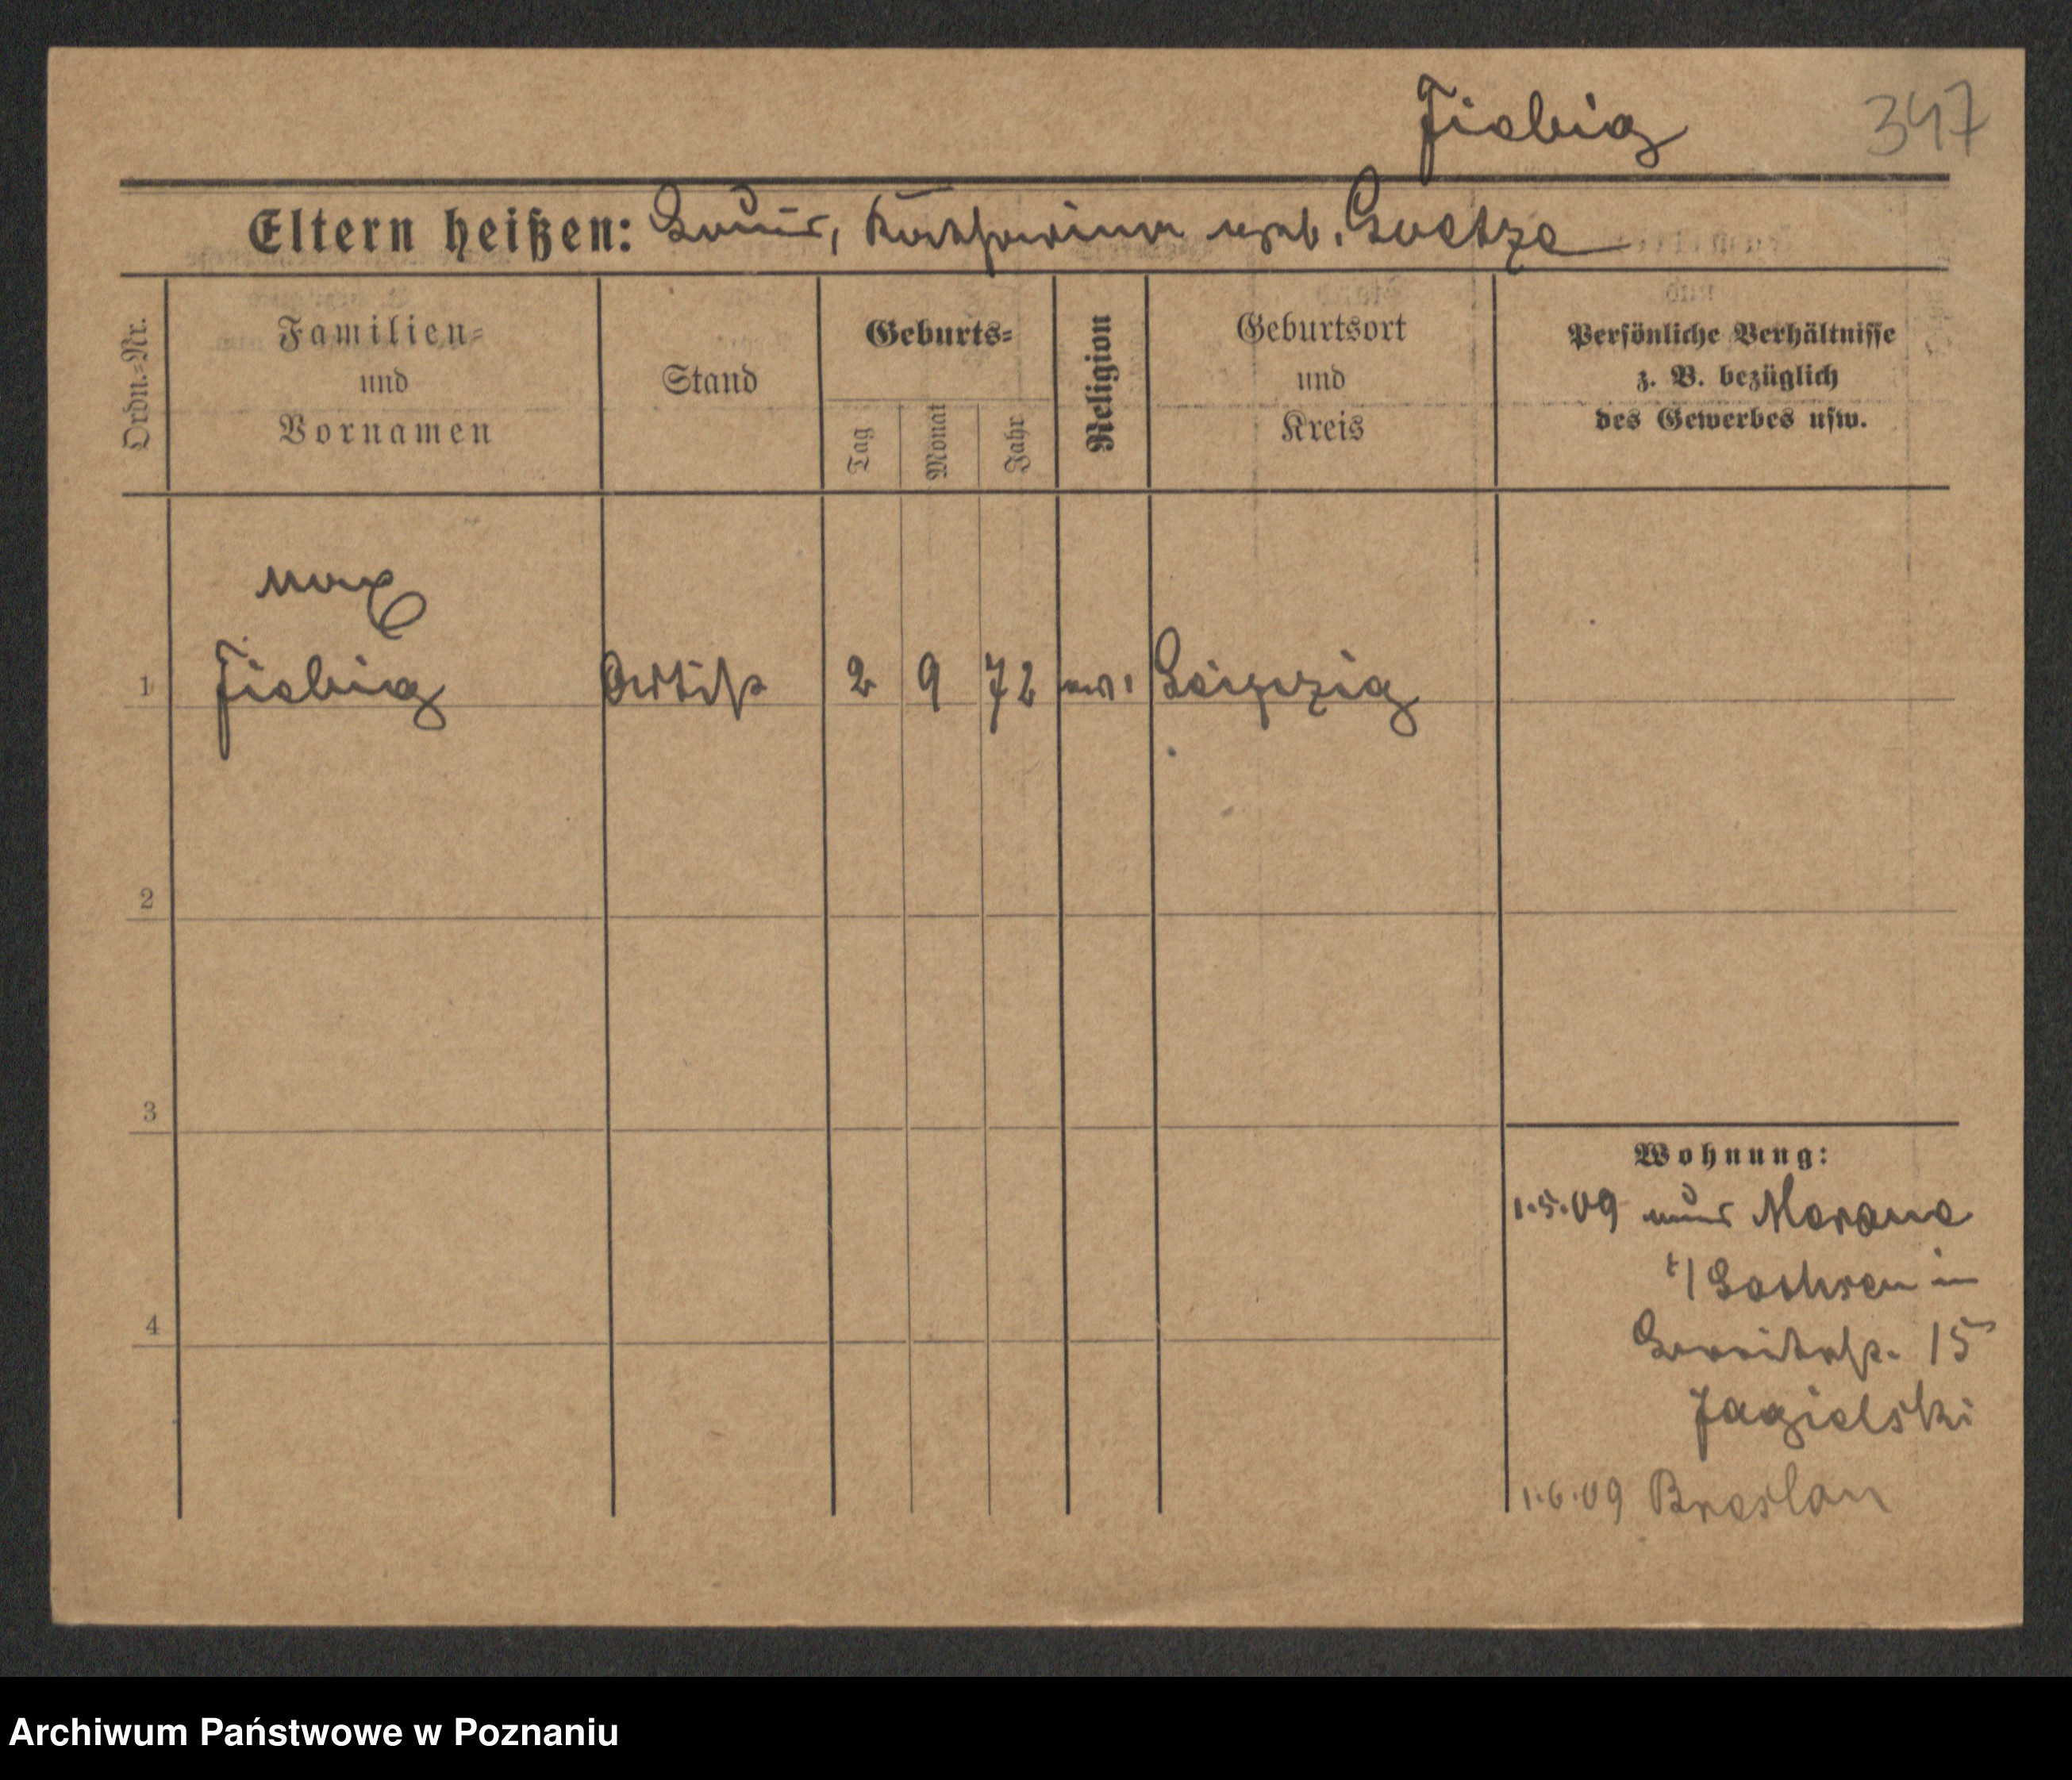 Fiebig 347
Eltern heißen: Louis, Katharina geb. Goetze
Ordn.-Nr.
Familien-
und
Vornamen
Stand
Geburts-
Tag
Monat
Jahr
Religion
Geburtsort
und
Kreis
Persönliche Verhältnisse
z. B. bezüglich
des Gewerbes usw.
Max
1 Fiebig Artist 2 9 72 ev. Leipzig
2
3
4
Wohnung:
1.5.09 aus Merane
i/Sachsen in
15
Jagielski
1.6.09 Breslau
Archiwum Państwowe w Poznaniu